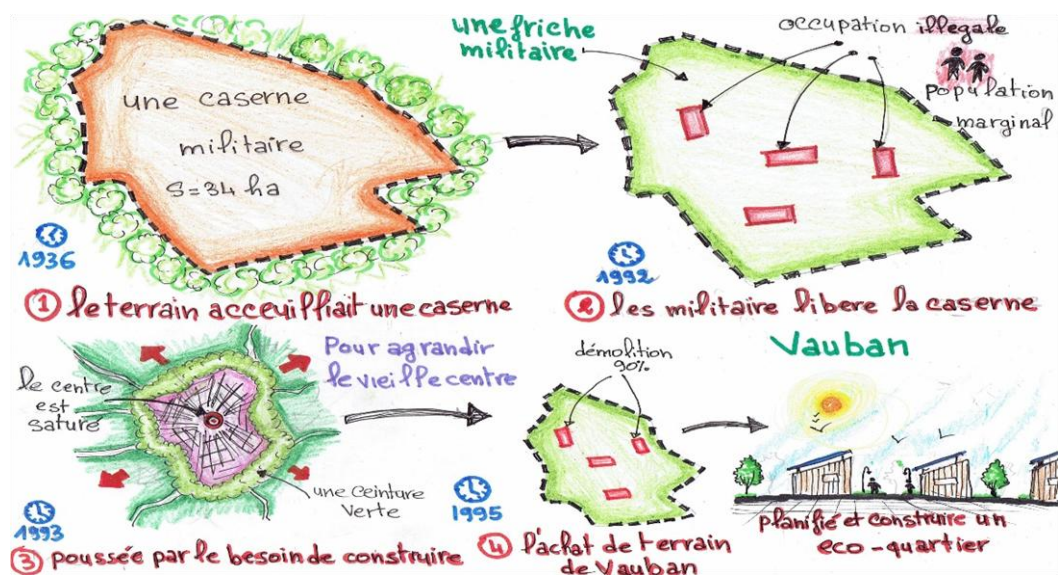 une caserne
militaire
S=34 ha
1936
① le terrain acceuilfiait une caserne
une friche
militaire
occupation illegale
population
marginal
1992
② les militaire libere la caserne
le centre
est
saturé
Pour agrandir
le vieille centre
une ceinture
verte
1993
③ poussée par le besoin de construire
démolition
90%
1995
④ l'achat de terrain
de Vauban
Vauban
planifié et construire un
eco-quartier